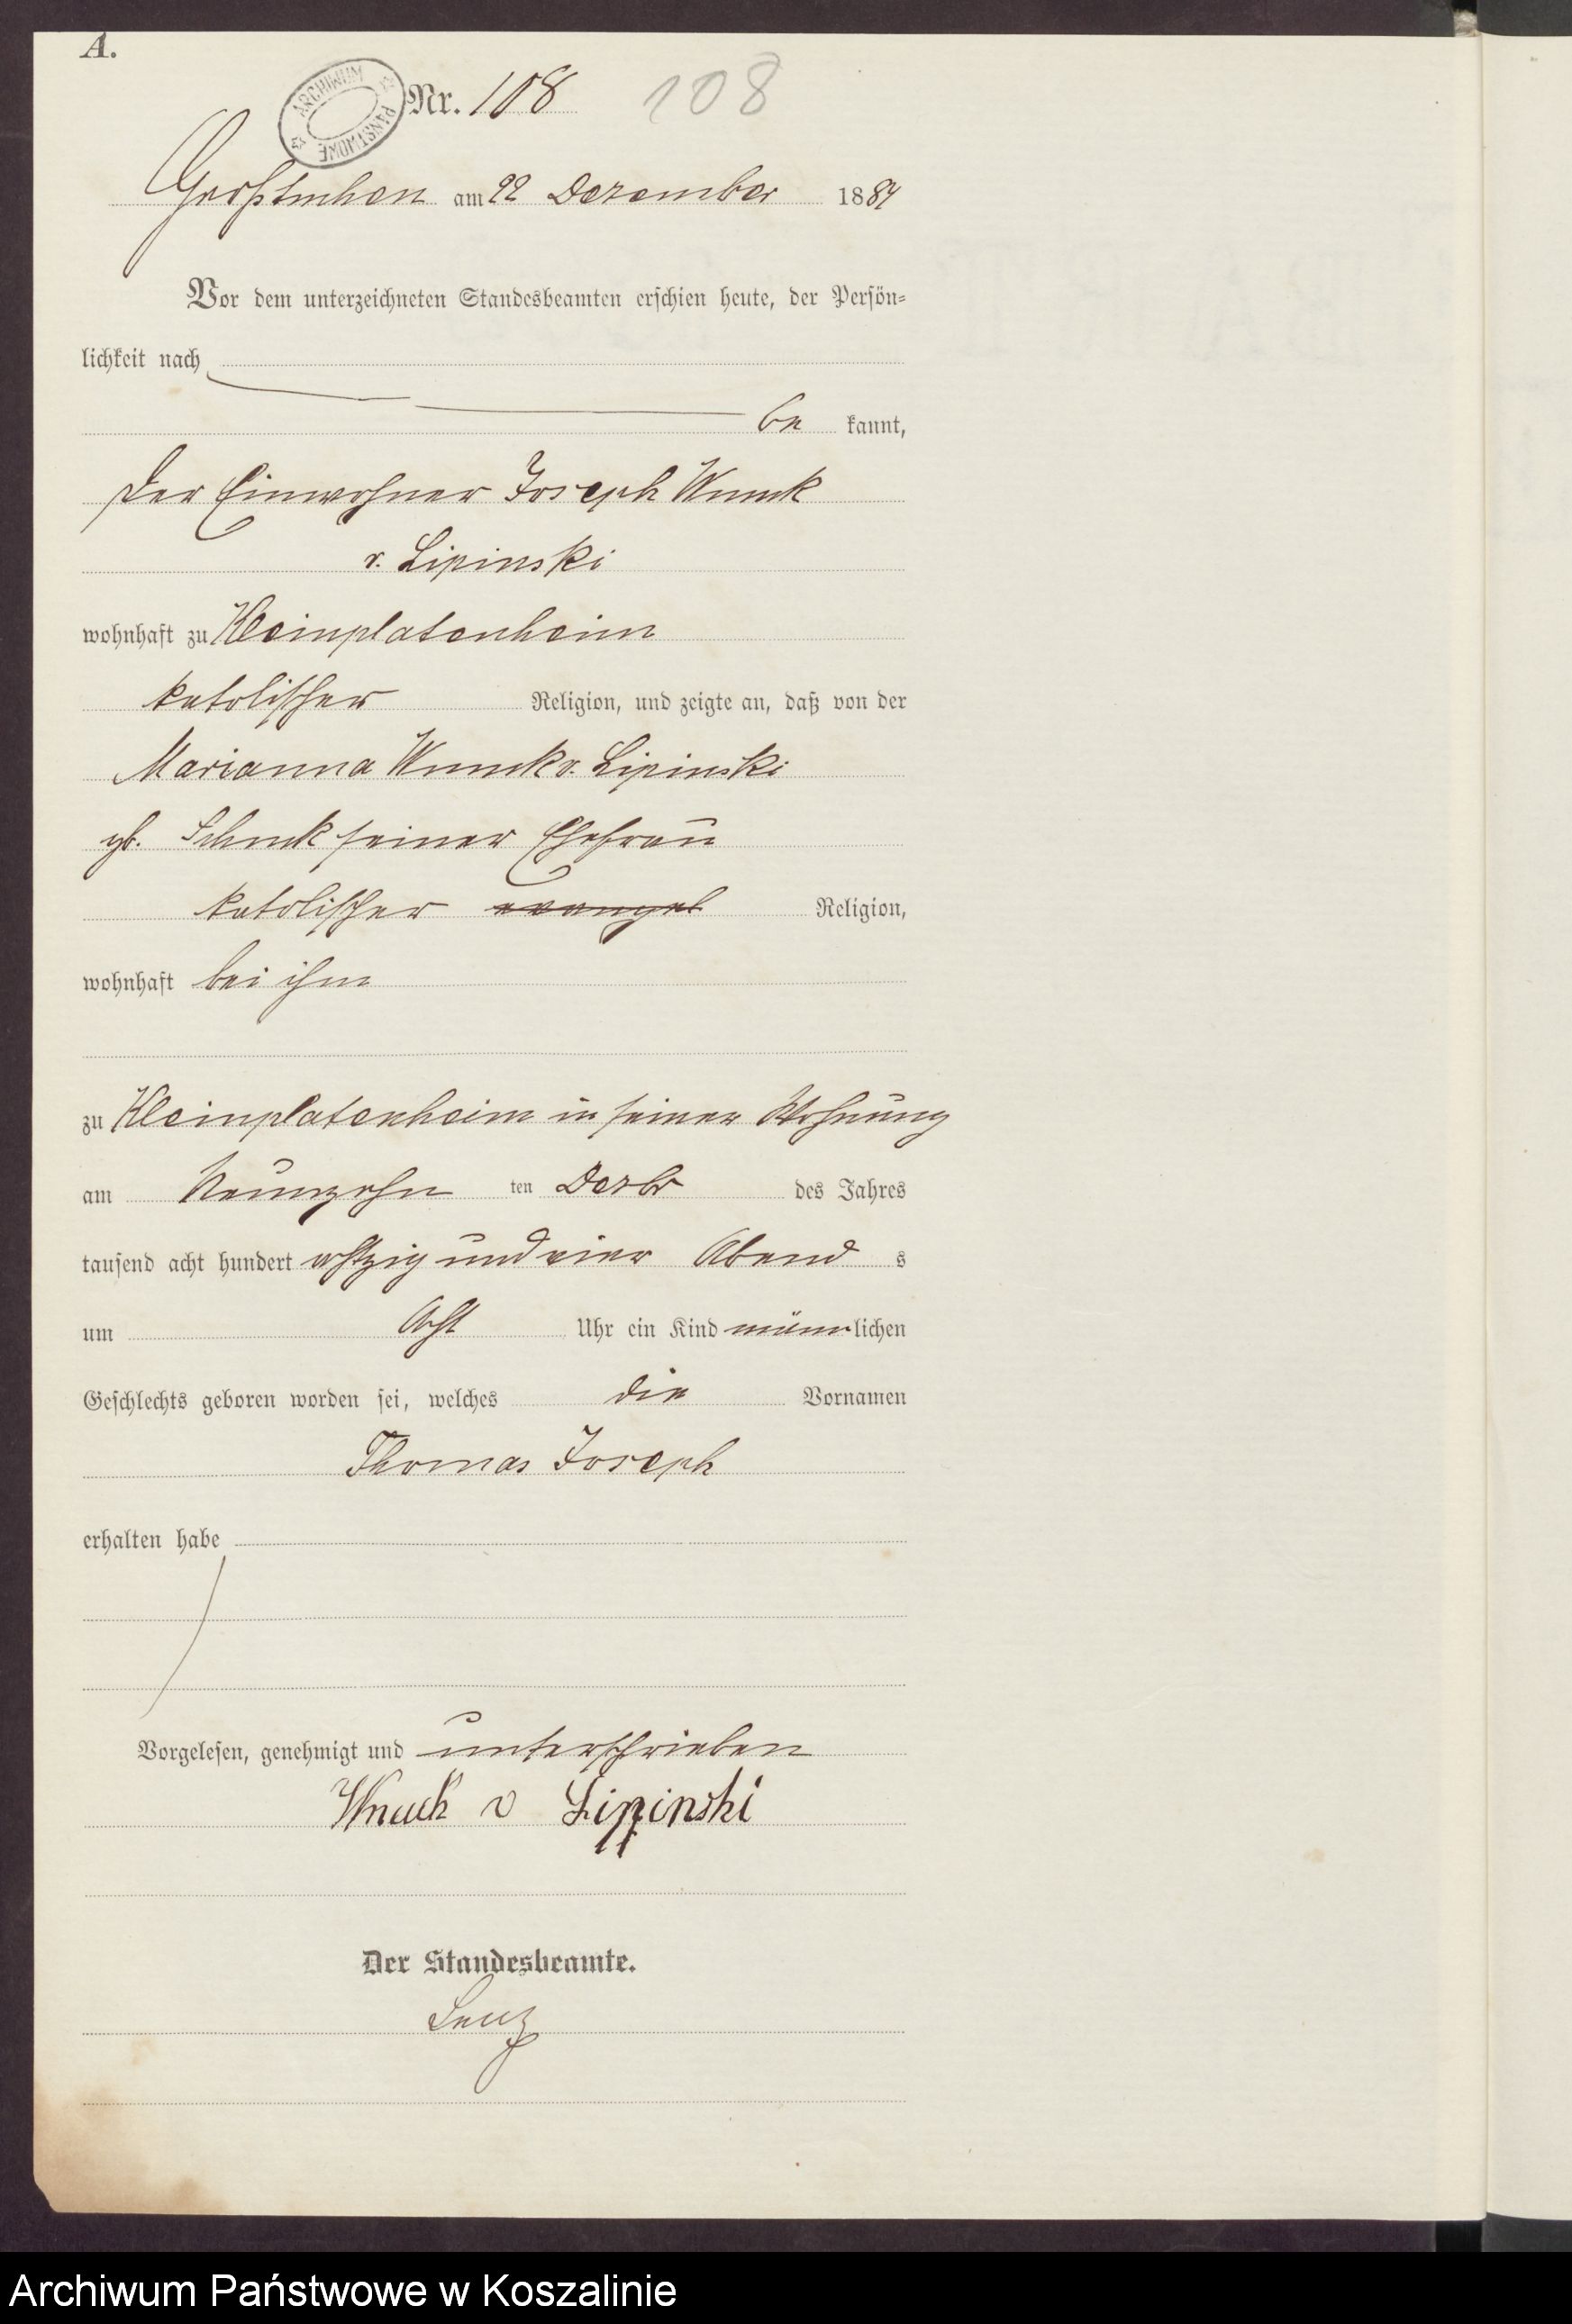 A.
ARCHIWUM PAŃSTWOWE
Nr. 108 108
Großtuchen am 22 Dezember 1884
Vor dem unterzeichneten Standesbeamten erschien heute, der Persön-
lichkeit nach
be kannt,
der Einwohner Joseph Wnuck
v. Lipinski
wohnhaft zu Kleinplatenheim
katolischer Religion, und zeigte an, daß von der
Marianna Wnuck v. Lipinski
gb. seiner Ehefrau
katolischer evangel Religion,
wohnhaft bei ihm
zu Kleinplatenheim in seiner Wohnung
am Neunzehn ten Dezbr des Jahres
tausend acht hundert achtzig und vier Abend s
um Acht Uhr ein Kind männlichen
Geschlechts geboren worden sei, welches die Vornamen
Thomas Joseph
erhalten habe
Vorgelesen, genehmigt und unterschrieben
Wnuck v Lipinski
Der Standesbeamte.
Lenz
Archiwum Państwowe w Koszalinie